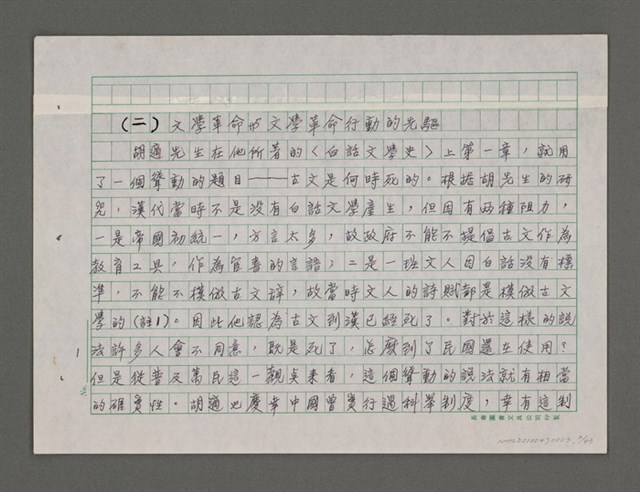 (二) 文學革命與文學革命行動的先驅
胡適先生在他所著的〈白話文學史〉上第一章，就用
了一個聳動的題目——古文是何時死的。根據胡先生的研
究，漢代當時不是沒有白話文學產生，但因有兩種阻力，
一是帝國初統一，方言太多，故政府不能不提倡古文作為
教育工具，作為官書的言語；二是一班文人因白話沒有標
準，不能不模倣古文辭，故當時文人的詩賦都是模倣古文
學的(註1)。因此他認為古文到漢已經死了。對於這樣的說
法許多人會不同意，既是死了，怎麼到了民國還在使用？
但是從普及萬民這一觀點來看，這個聳動的說法就有相當
的確實性。胡適也慶幸中國曾實行過科舉制度，幸有這制
1
No.